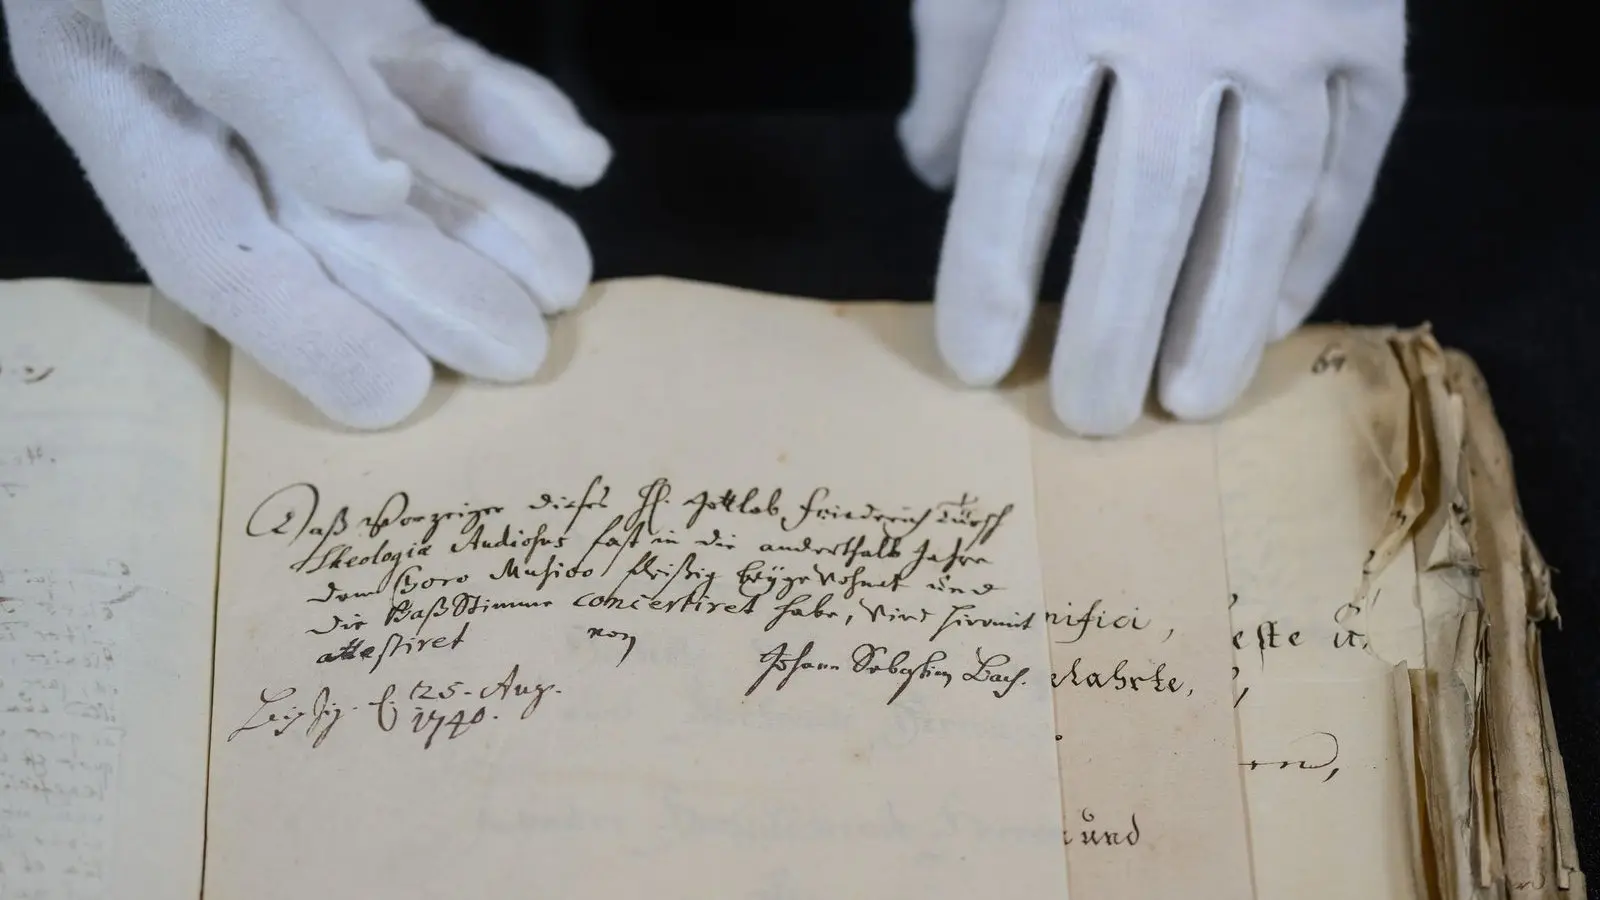 64
Daß Vorzeiger dieses H. Gottlob Friedrich Türsch
Theologiæ Studiosus fast in die anderthalb Jahre
dem Choro Musico fleißig beygewohnet und
die Baß Stimme concertiret habe, wird hiermit
attestiret von
Johann Sebastian Bach.
Leipzig. d. 25. Aug.
1740.
nifici,
este
elahrte,
en,
und